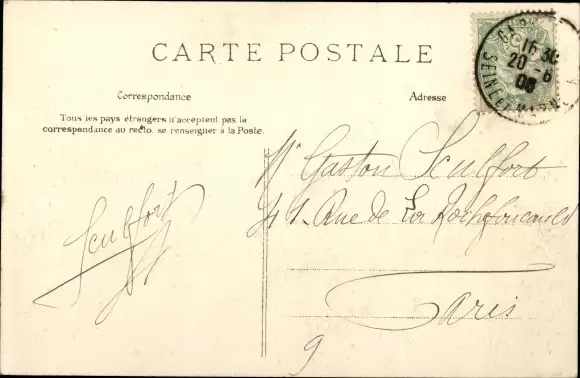 CARTE POSTALE
Correspondance
Adresse
Tous les pays étrangers n'acceptent pas la
correspondance au recto, se renseigner à la Poste.
16 30
20 - 6
06
SEINE ET
Mr Gaston Sculfort
41. Rue de La Rochefoucauld
Paris
9
Sculfort